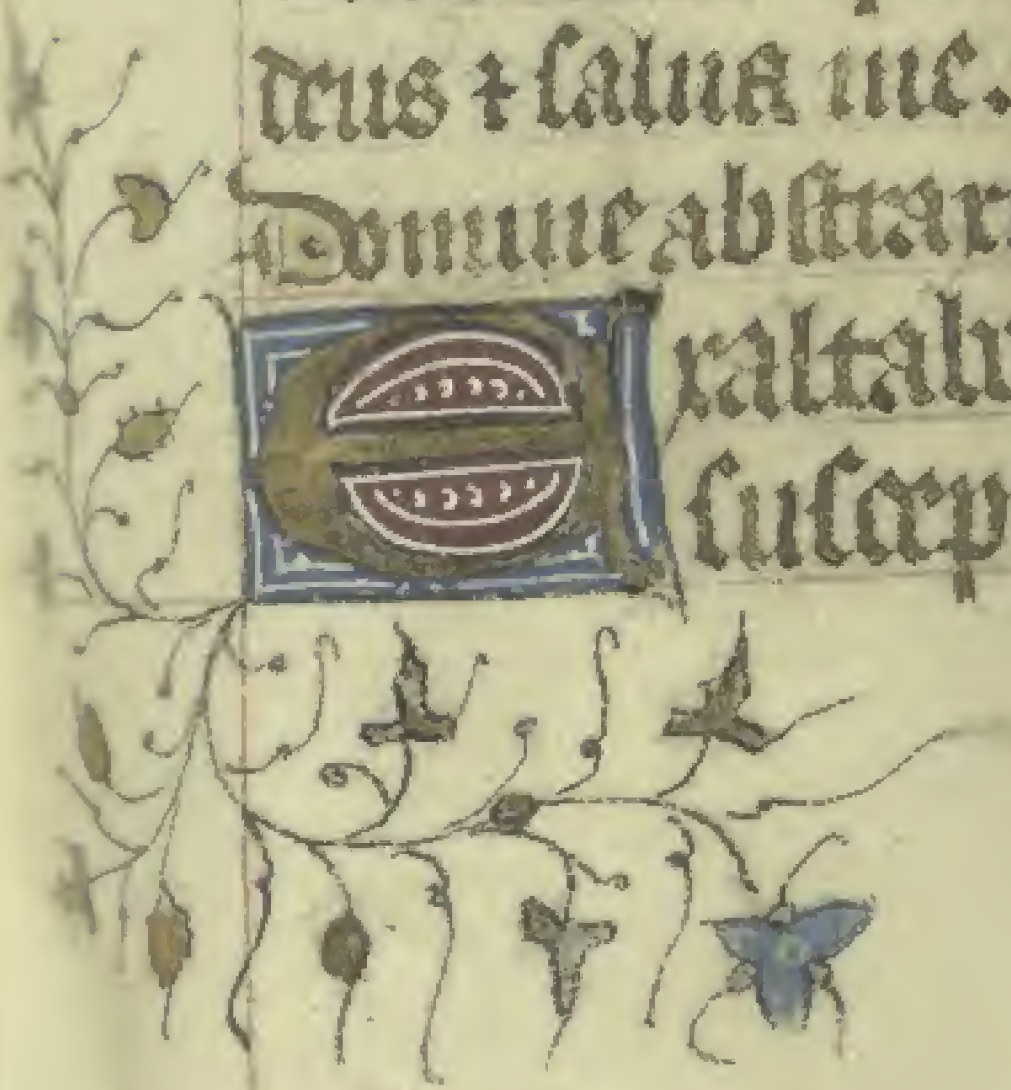 deus ⁊ saluũ me.
Domine abstrax
Exaltabi
suscep